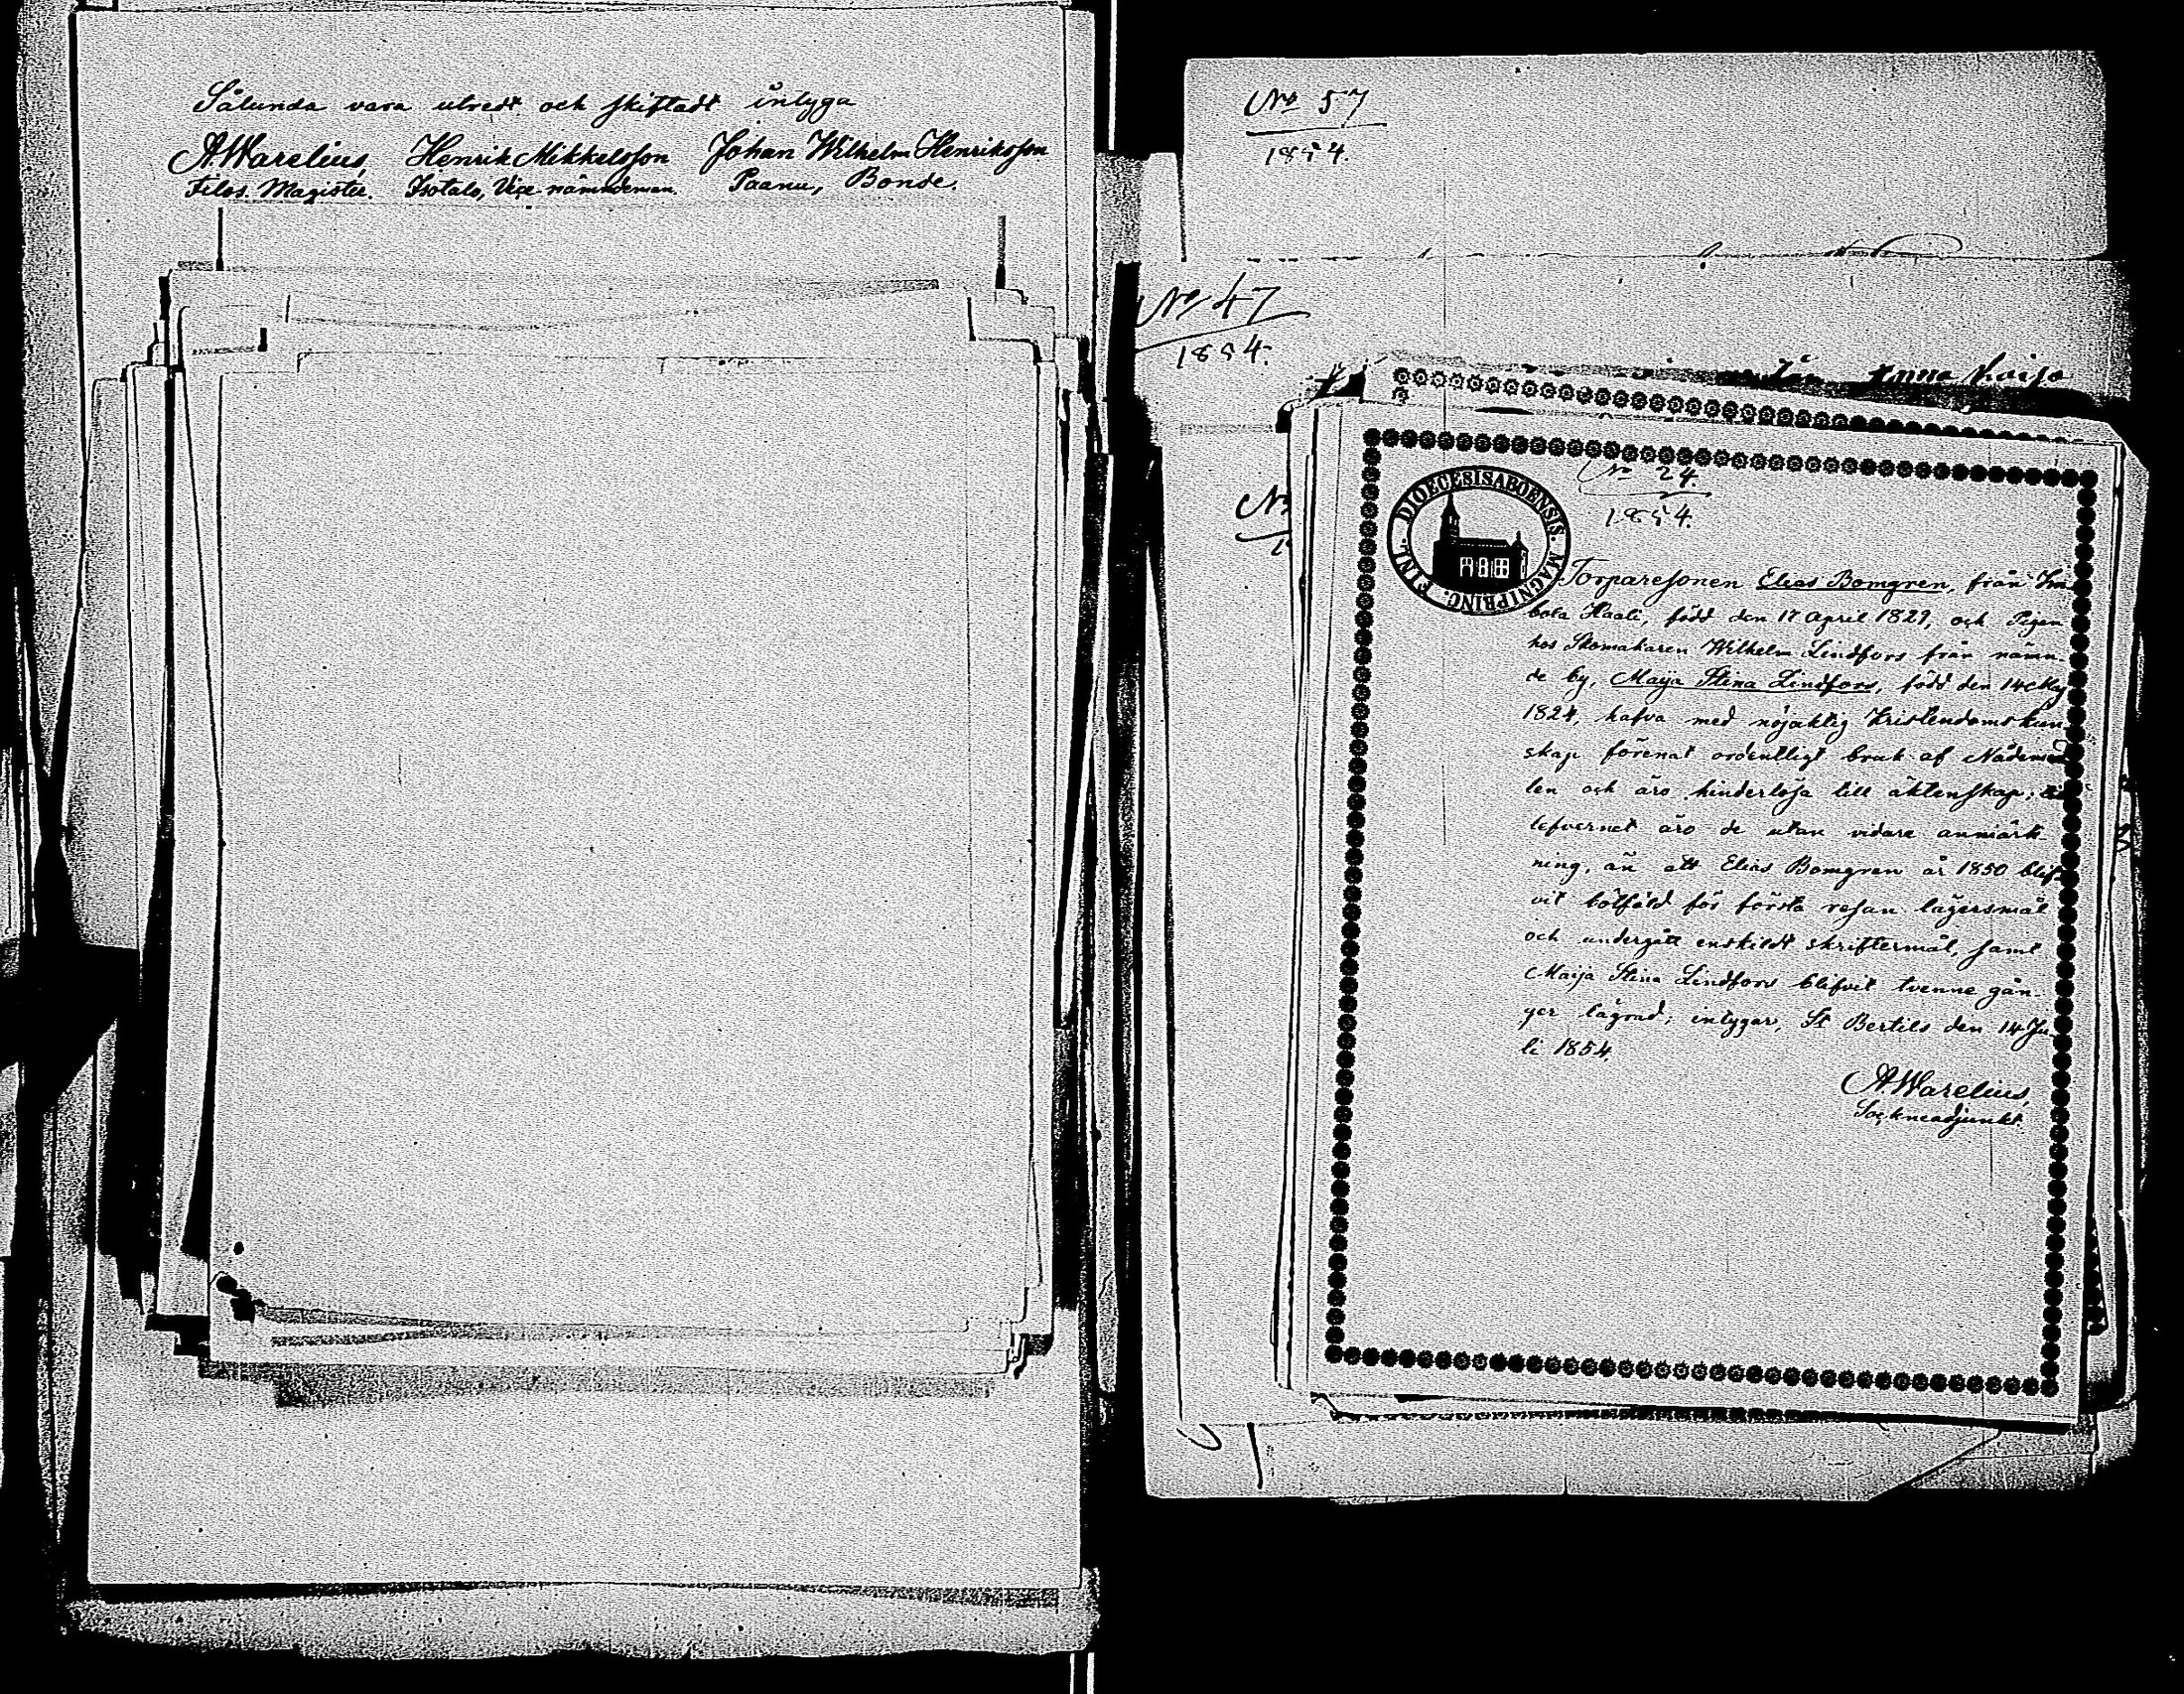 Sålunda vara utredt och skiftadt intyga
AWarelius, Henrik Mikkelsson Johan Wilhelm Henriksson
Filos. Magister. Isotalo, Vice nämndeman. Paanu, Bonde.
No 57
1854.
No 47
1854.
Anna Kaisa
No 24.
1854.
DIOECESIS ABOENSIS. MAGNI PRINC. FINL.
Torparesonen Elias Bomgren, från
bola Haali, född den 17 April 1829, och Pigan
hos Skomakaren Wilhelm Lindfors från nämn-
de by, Maija Stina Lindfors, född den 14 Maj
1824, hafva med nöjaktig Kristendomskun
skap förenat ordentligt bruk af Nådeme
len och äro hinderlösa till äktenskap;
lefvernet äro de utan vidare anmärk-
ning, än att Elias Bomgren år 1850 blif-
vit bötfäld för första resan lägersmål
och undergått enskildt skriftermål, samt
Maija Stina Lindfors blifvit tvenne gån-
ger lägrad; intygar, St Bertils den 14 Ju
li 1854.
AWarelius,
Sockneadjunkt.